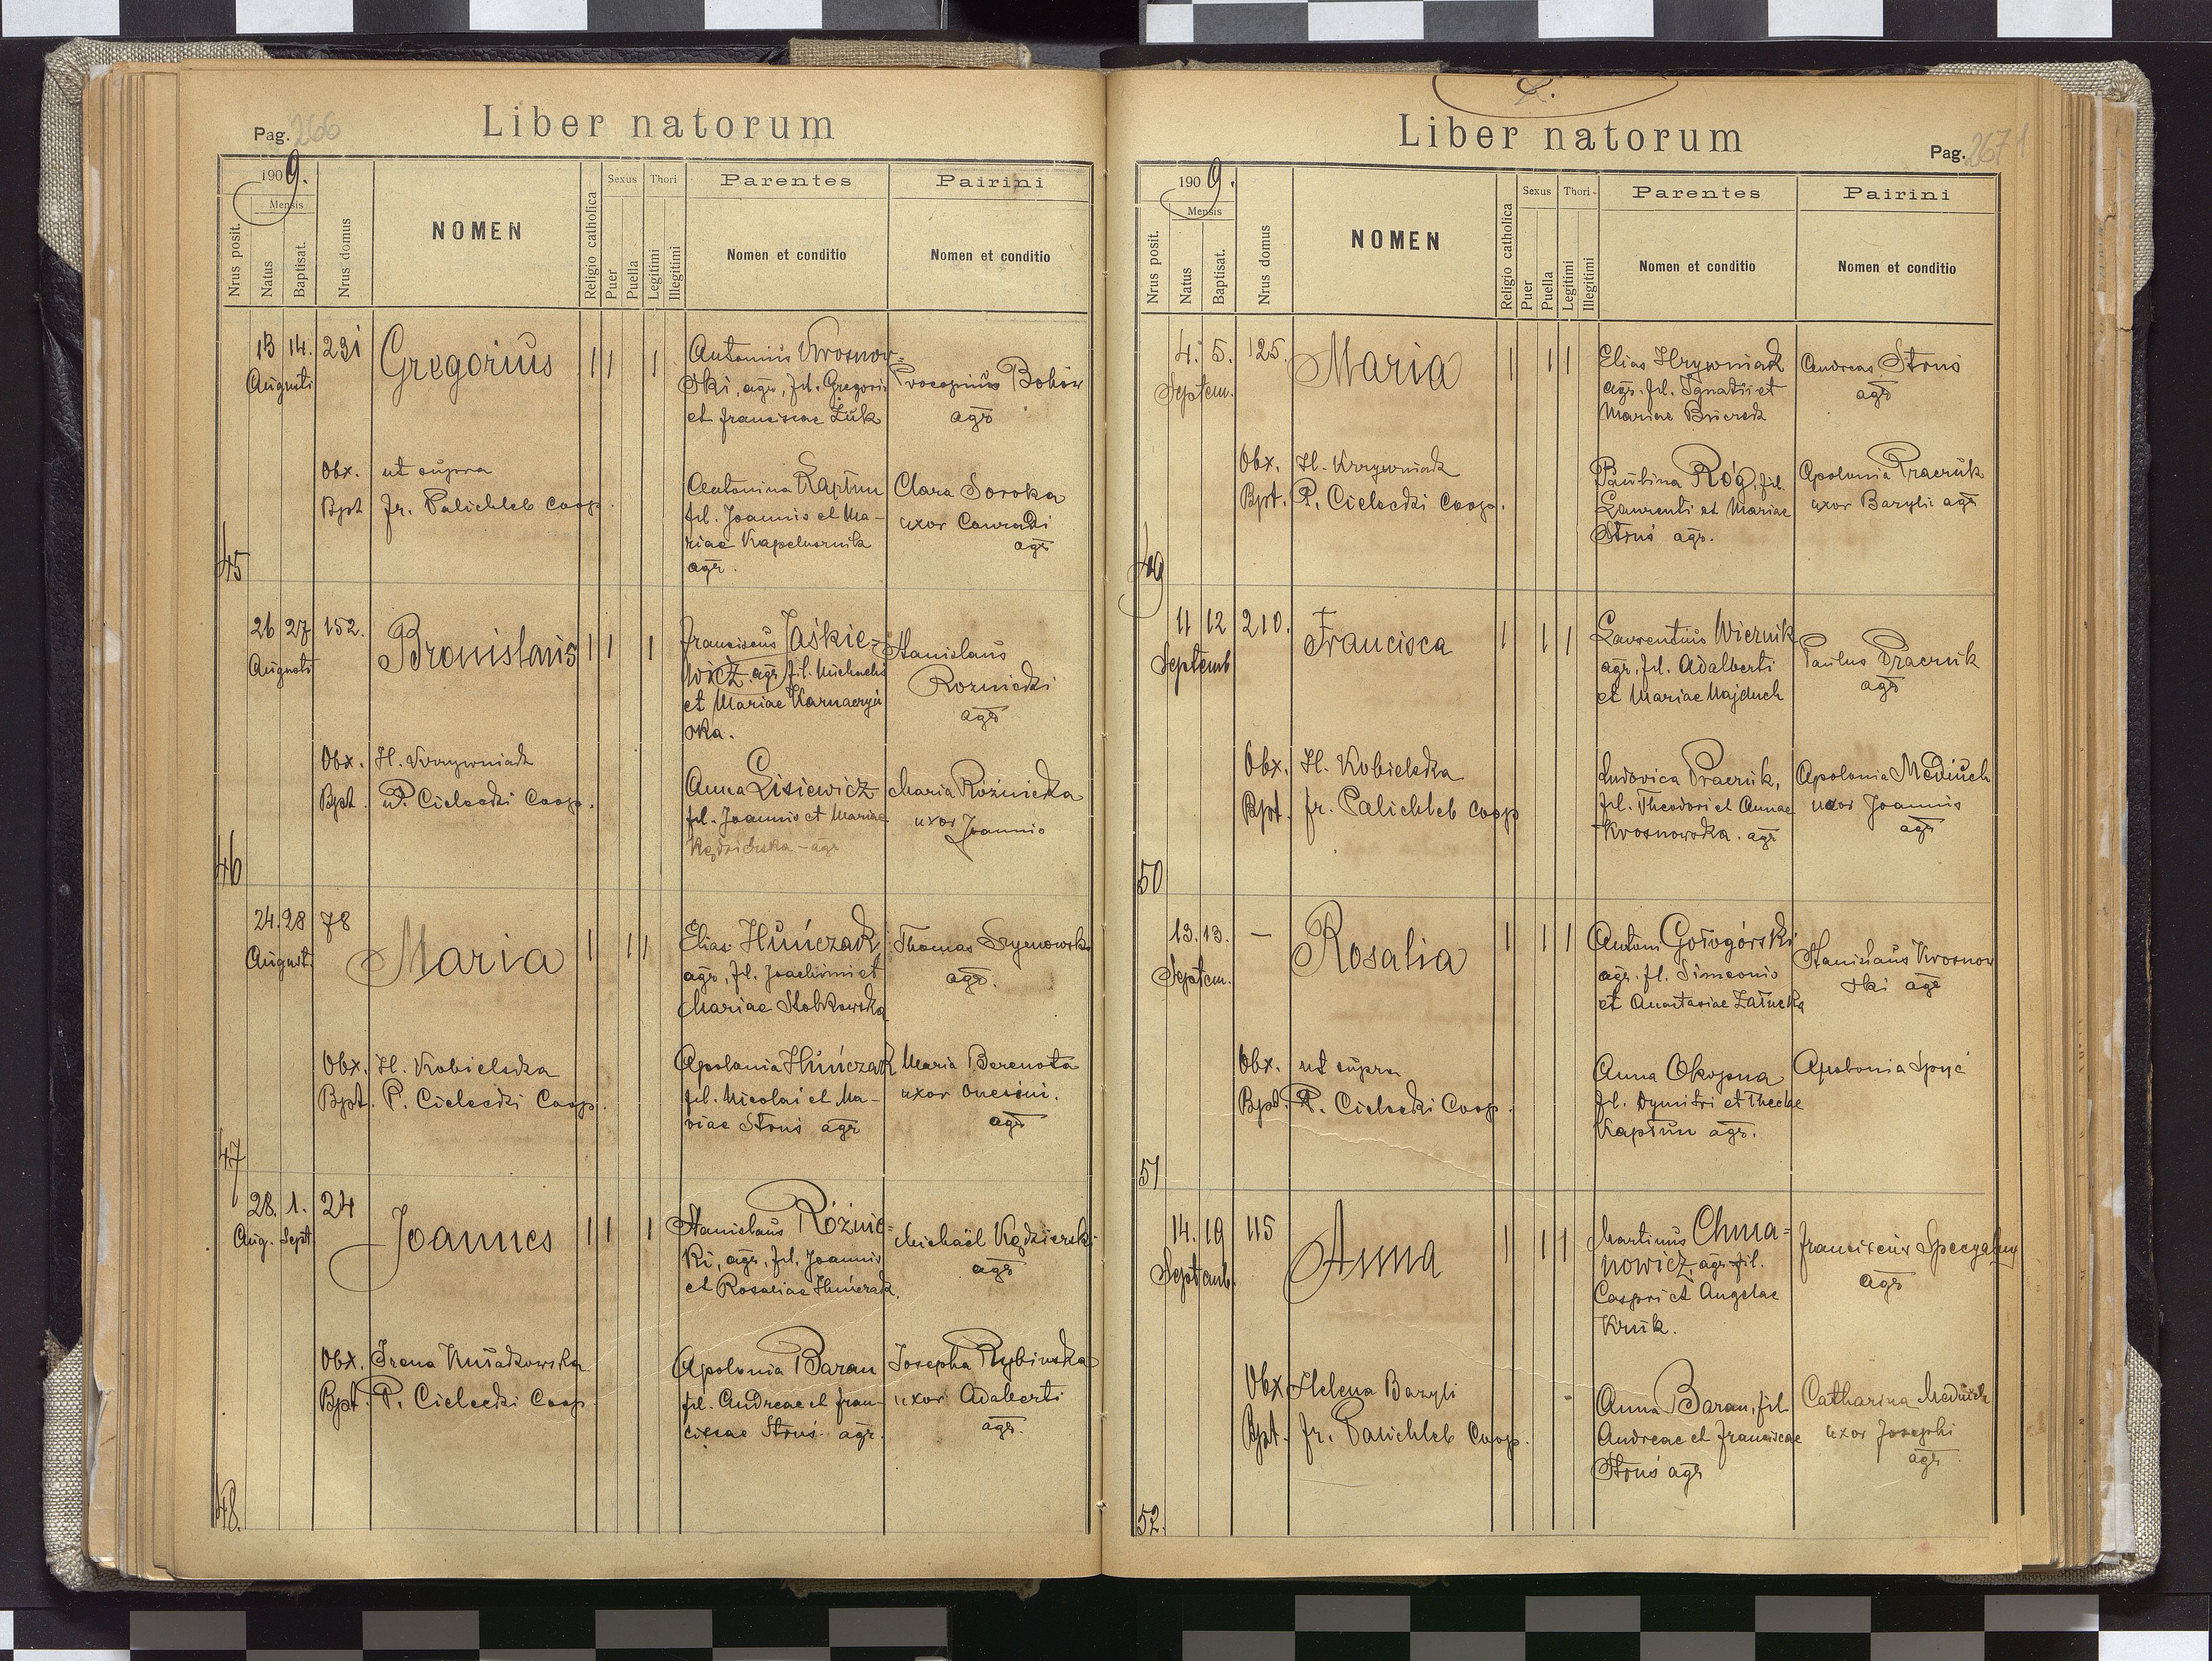 Pag. 266
Liber natorum
1909.
Mensis
Nrus posit.
Natus
Baptisat.
Nrus domus
NOMEN
Religio catholica
Sexus
Puer
Puella
Thori
Legitimi
Illegitimi
Parentes
Nomen et conditio
Pairini
Nomen et conditio
45
13 14. 231
Augusti
Gregorius
1 1 1
Antonius Krosnow-
ski, agr, fil. Gregorii
et Franciscae Żuk
Procopius Bohów
agr
Obx. ut supra
Bpt Fr. Palichleb Coop.
Antonina Kaptun
fil. Joannis et Ma-
riae Kapelusznik
agr.
Clara Soroka
uxor Conradi
agr
46
26 27 152.
Augusti
Bronislaus
1 1 1
Franciscus Jaśkie-
wicz agr, fil. Michaelis
et Mariae Karnaczyń
ska.
Stanislaus
Roznicki
agr
Obx. H. Krzywniak
Bpt. P. Cielecki Coop.
Anna Lisiewicz
fil. Joannis et Mariae
Kędzierska - agr
Maria Różnicka
uxor Joannis
47
24. 28 78
August.
Maria
1 1 1
Elias Huńczak
agr, fil. Joachimi et
Mariae Stobkowska
Thomas
agr.
Obx. H. Kobielska
Bpt. P. Cielecki Coop.
Apolonia Huńczak
fil. Nicolai et Ma-
riae Struś agr
Maria Berezota
uxor Onesimi.
agr
48.
28. 1. 24
Aug. Sept
Joannes
1 1 1
Stanislaus Różnic-
ki, agr, fil. Joannis
et Rosaliae Huńczak.
Michaël Kędzierski
agr
Obx. Irena
Bpt. P. Cielecki Coop.
Apolonia Baran
fil. Andreae et Fran-
ciscae Struś agr.
Josepha Rybinska
uxor Adalberti
agr.
Liber natorum
Pag. 267
1909.
Mensis
Nrus posit.
Natus
Baptisat.
Nrus domus
NOMEN
Religio catholica
Sexus
Puer
Puella
Thori
Legitimi
Illegitimi
Parentes
Nomen et conditio
Pairini
Nomen et conditio
49
4. 5. 125.
Septem.
Maria
1 1 1
Elias Hrywniak
agr. fil. Ignatii et
Mariae
Andreas Struś
agr
Obx. H. Krzywniak
Bpt. P. Cielecki Coop.
Paulina Róg, fil.
Laurenti et Mariae
Struś agr.
Apolonia Pracuk
uxor Bazyli agr
50
11 12 210.
Septemb
Francisca
1 1 1
Laurentius Wiernik
agr, fil. Adalberti
et Mariae Majduch
Paulus Pracuk
agr
Obx. H. Kobielska
Bpt. Fr. Palichleb Coop
Ludovica Pracuk,
fil. Theodori et Annae
Krosnowska. agr
Apolonia Mediuch
uxor Joannis
agr
51
13. 13. —
Septem.
Rosalia
1 1 1
Antoni Gołogórski
agr. fil. Simeonis
et Anastasiae Załucka
Stanislaus Krosnow
ski agr
Obx. ut supra
Bpt. P. Cielecki Coop.
Anna Okopna
fil. Dymitri et Theclae
Kaptun agr.
Apolonia Spyć
52.
14. 19 115
Septemb.
Anna
1 1 1
Martinus Chma-
nowicz, agr fil.
Caspri et Angelae
Kruk.
Franciscus Specyalny
agr
Obx Helena Bazyli
Bpt. Fr. Palichleb Coop.
Anna Baran, fil
Andreae et Franciscae
Struś agr
Catharina Mediuch
uxor Josephi
agr